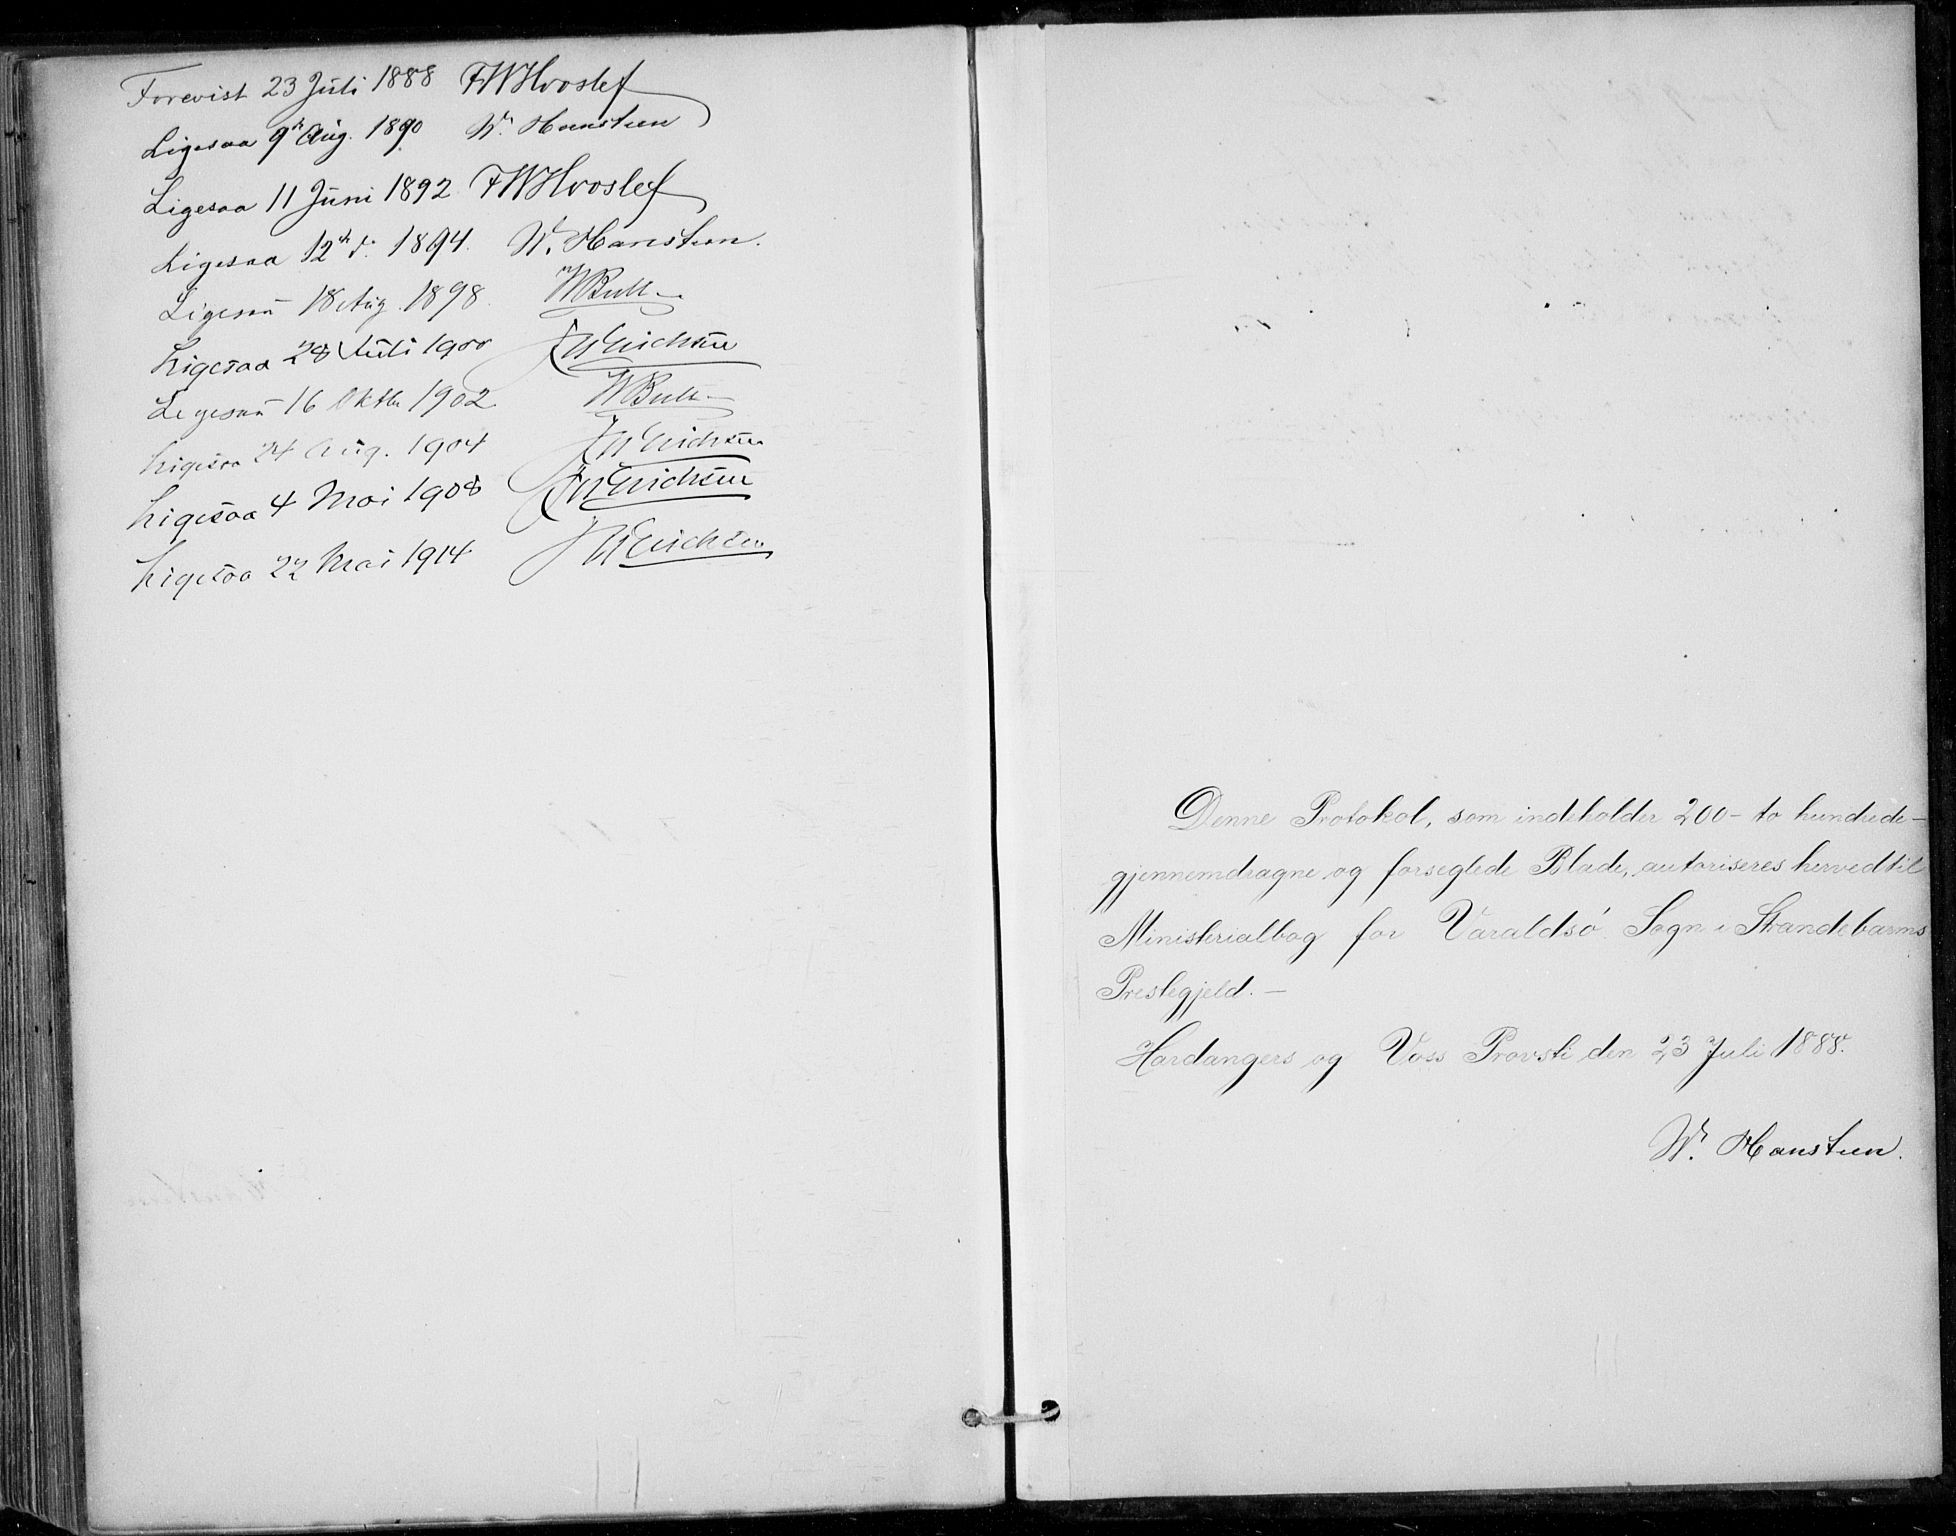 Forevist 23 Juli 1888 FWHvoslef
Ligesaa 9de Aug. 1890 Wr. Hansteen
Ligesaa 11 Juni 1892 FWHvoslef
Ligesaa 12te d. 1894. Wr. Hansteen.
Ligesaa 18 Aug. 1898. WBull
Ligesaa 28 Juli 1900 Erichsen
Ligesaa 16 Oktbr 1902 WBull
Ligesaa 24 Aug. 1904 Erichsen
Ligesaa 4 Mai 1908 Erichsen
Ligesaa 22 Mai 1914 Erichsen
Denne Protokol, som indeholder 200 - to hundrede -
gjennemdragne og forseglede Blade, autoriseres herved til
Ministerialbog for Varaldsö Sogn i Strandebarms
Prestegjeld. -
Hardangers og Voss Provsti den 23 Juli 1888.
Wr. Hansteen.